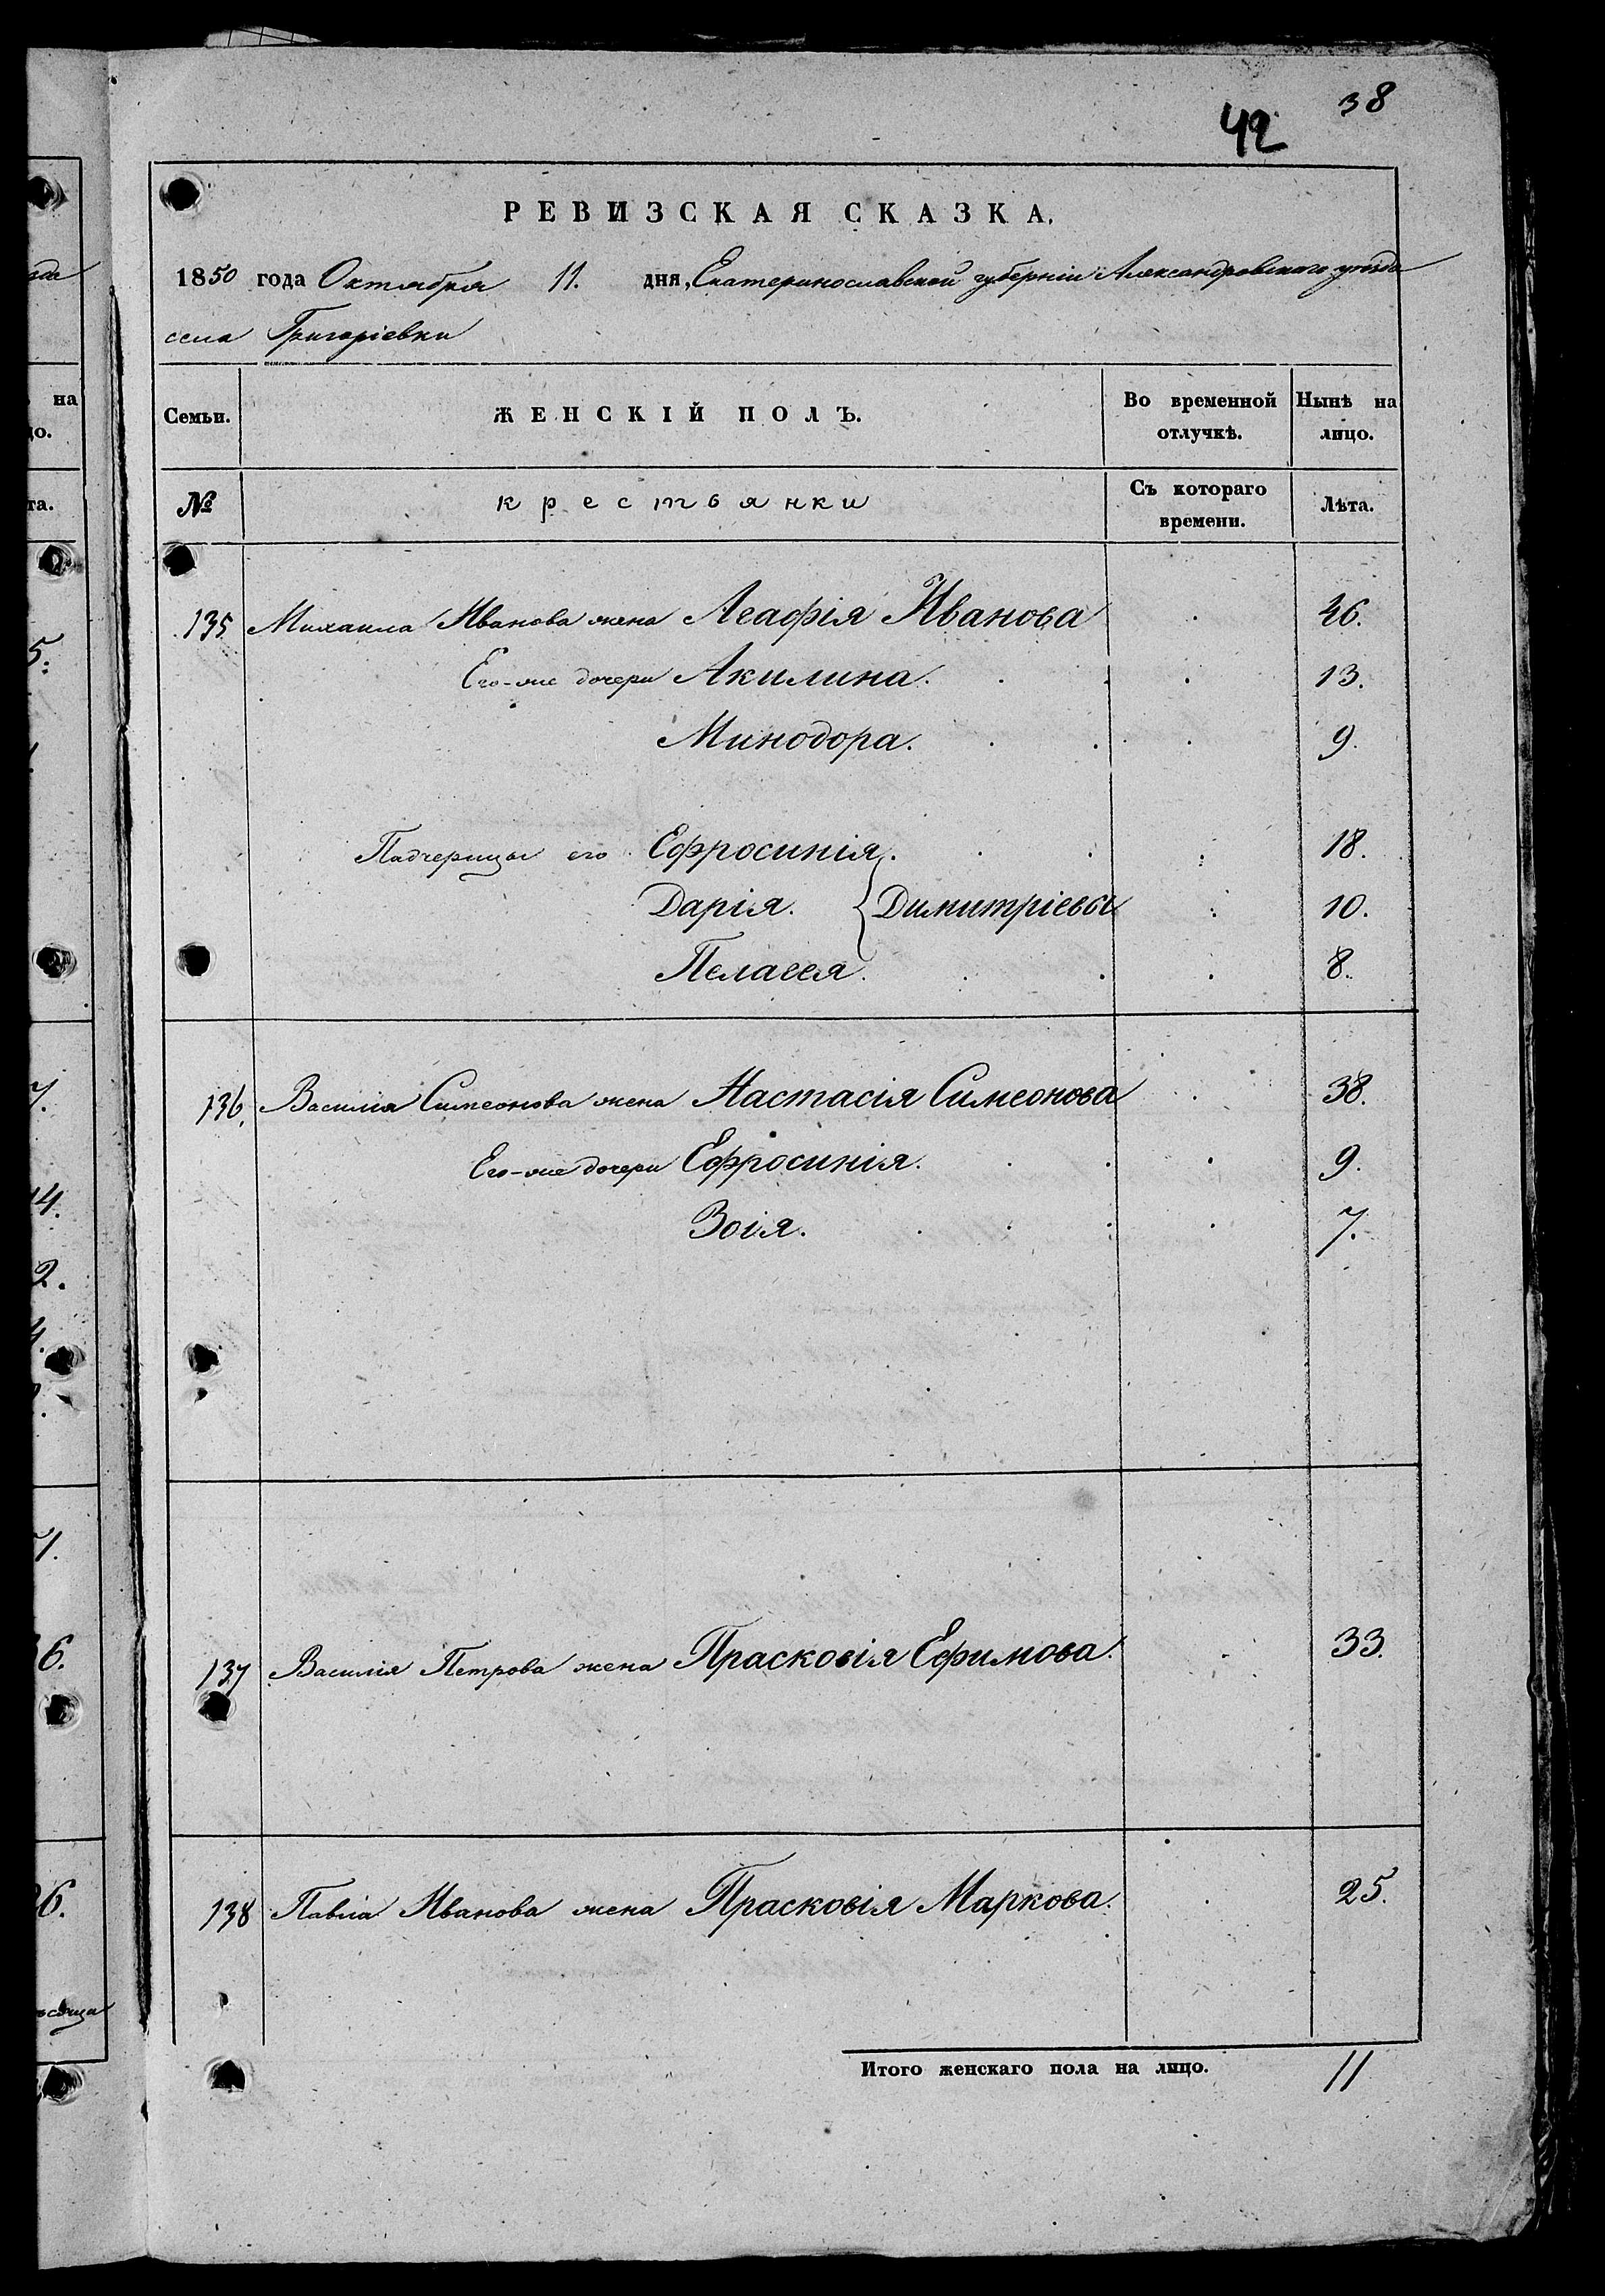 38
42
РЕВИЗСКАЯ СКАЗКА.
1850 года Октября 11. дня, Екатеринославской губерніи Александровскаго уѣзда
села Григоріевки
Семьи. ЖЕНСКІЙ ПОЛЪ. Во временной отлучкѣ. Нынѣ на лицо.
№ крестьянки Съ котораго времени. Лѣта.
135 Михаила Иванова жена Агафія Иванова 46.
Его-же дочери Акилина. 13.
Минодора. 9.
Падчерицы его Ефросинія. 18.
Дарія. { Димитріевы 10.
Пелагея. 8.
136. Василія Симеонова жена Настасія Симеонова 38.
Его-же дочери Ефросинія. 9.
Зоія. 7.
137 Василія Петрова жена Прасковія Ефимова. 33.
138 Павла Иванова жена Прасковія Маркова. 25.
Итого женскаго пола на лицо. 11